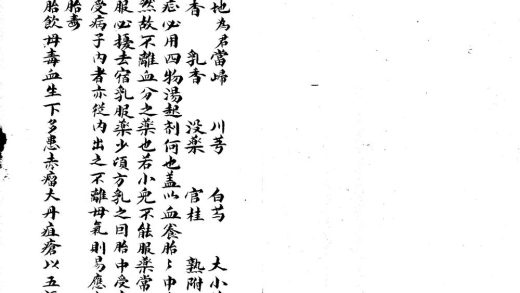 地為君當歸　川芎　白芍　大小
香　乳香　没藥　官桂　熟附
痣必用四物湯起剂何也蓋以血養胎〻中
然故不離血分之藥也若小兒不能服藥常
服必擾去宿乳服藥少頃方乳之回胎中受
受病子内者亦從内出之不離母氣則易應
胎毒
胎飲母毒血生下多患赤瘤大丹疽瘡以五